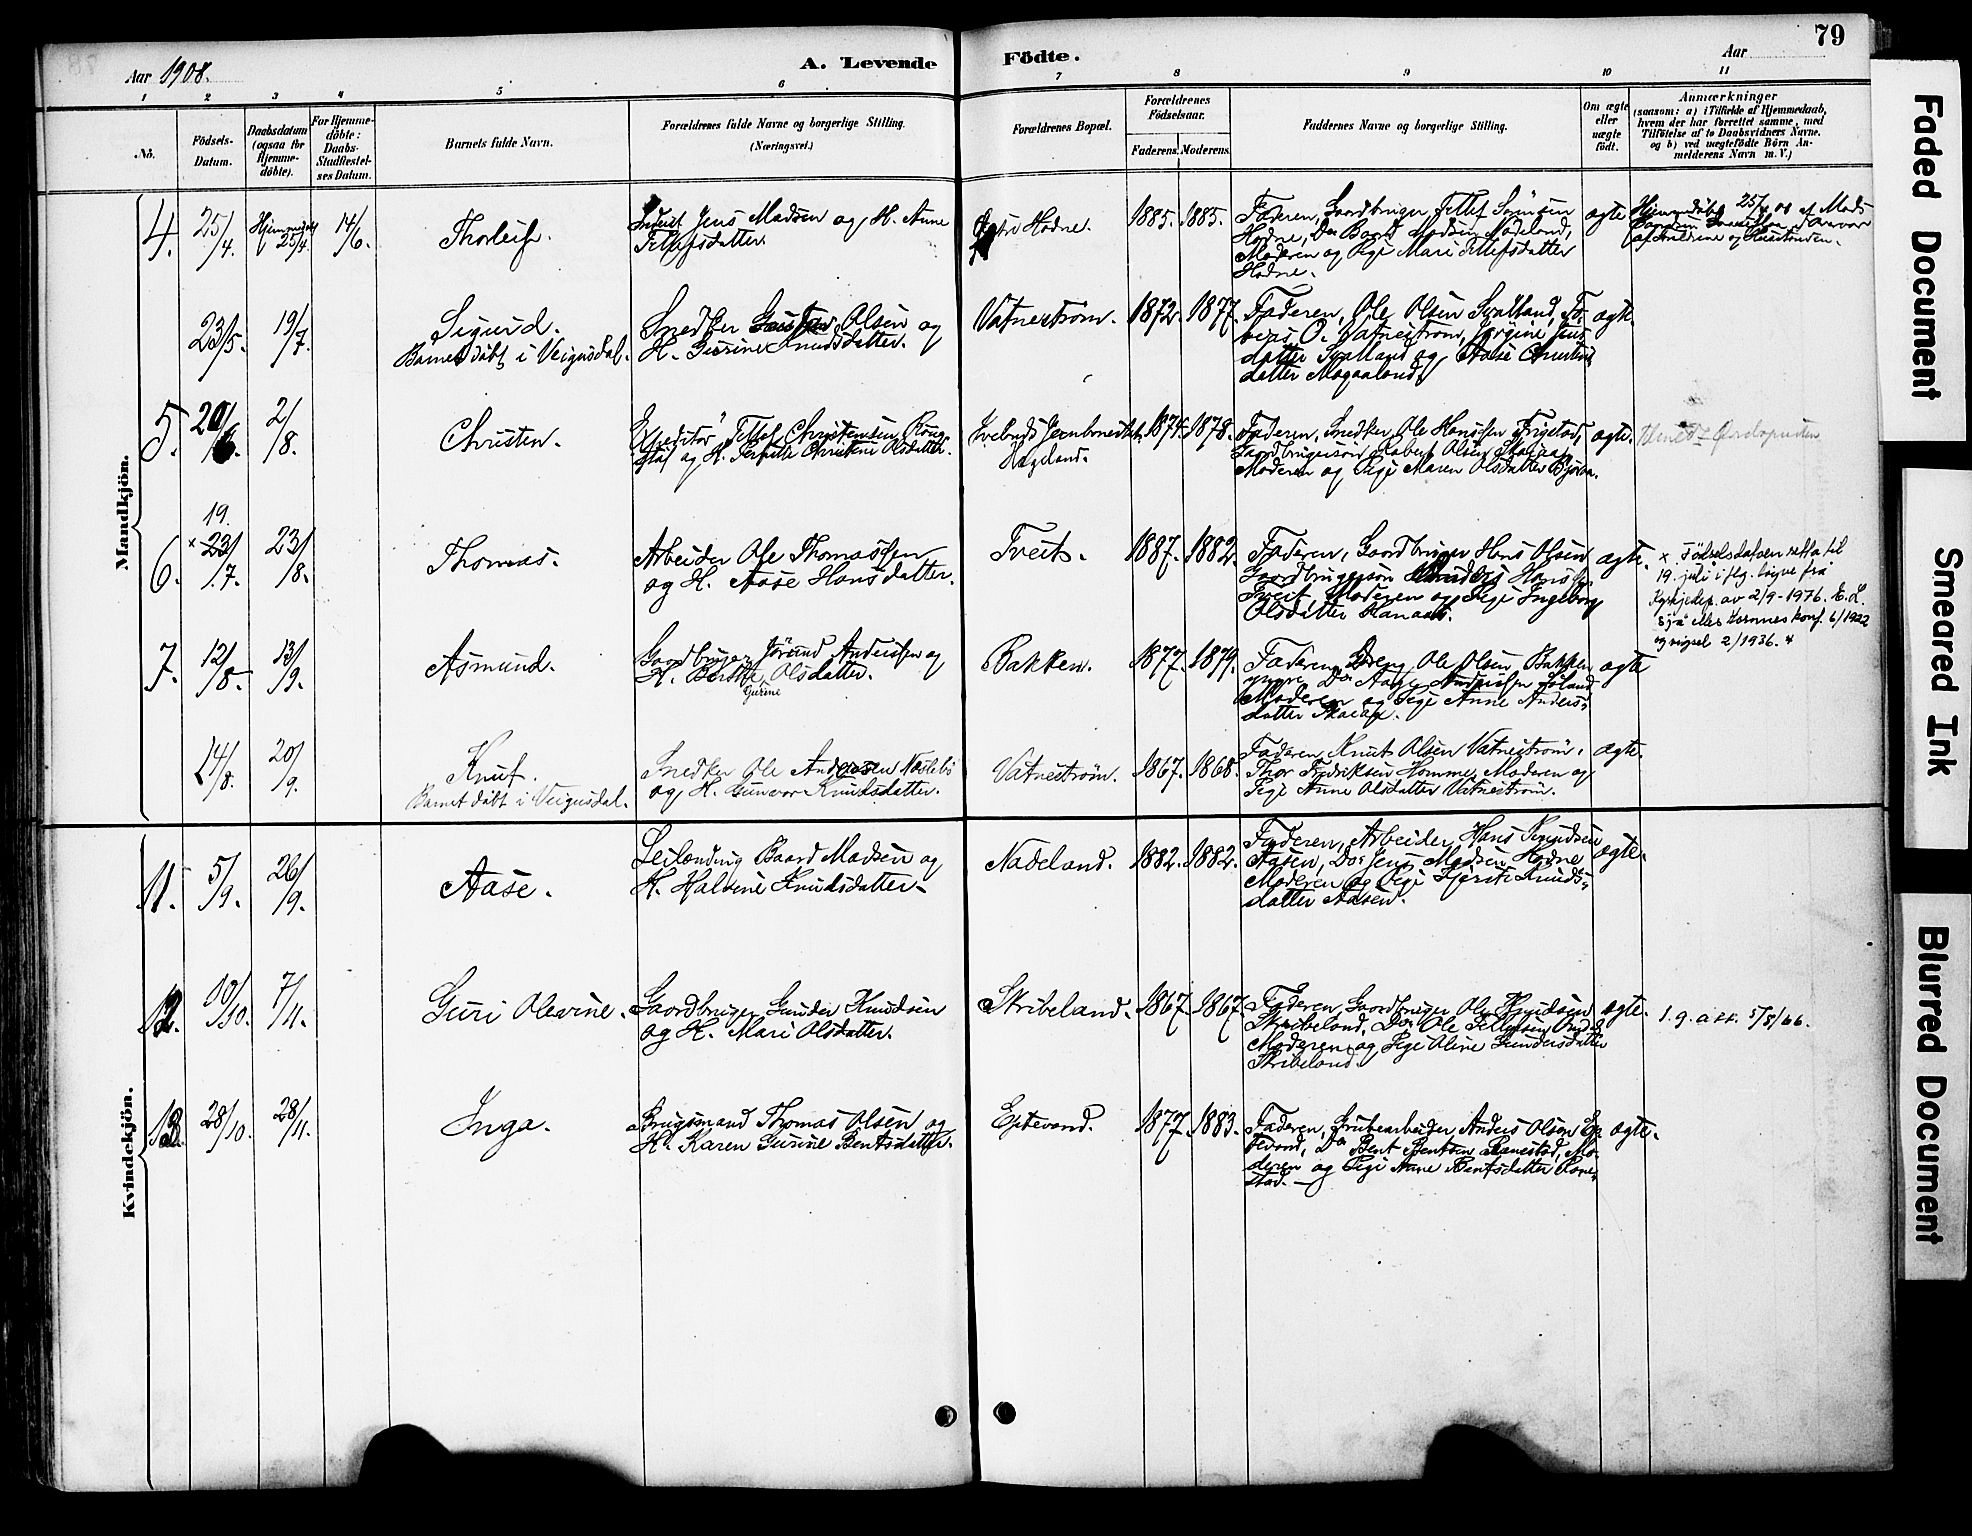 79
Aar 1908.
A. Levende Födte.
Aar
1 2 3 4 5 6 7 8 9 10 11
No.
Födsels-Datum.
Daabsdatum (ogsaa for Hjemme-döbte).
For Hjemme-döbte: Daabs-Stadfestel-ses Datum.
Barnets fulde Navn.
Forældrenes fulde Navne og borgerlige Stilling. (Næringsvei.)
Forældrenes Bopæl.
Forældrenes Födselsaar.
Faderens. Moderens.
Faddernes Navne og borgerlige Stilling.
Om ægte eller uægte födt.
Anmærkninger
(saasom: a) i Tilfælde af Hjemmedaab, hvem der har forrettet samme, med Tilföielse af to Daabsvidners Navne. og b) ved uægtefödte Börn An-melderens Navn m. V.)
Mandkjön.
4. 25/4. Hjemmedöbt 25/4 14/6. Thorleif.
Jens Madsen og H. Anne
Tellefsdatter.
Hodne. 1885. 1885.
Faderen, Gaardbruger Tellef Sörensen
Hodne, Do Baard Madsen Nadeland,
Moderen og Pige Mari Tellefsdatter
Hodne.
ægte
Hjemmedöbt 25/4 08 af Mads
23/5. 19/7. Sigurd.
Barnet döbt i Veigusdal.
Snedker Olsen og
H. Gurine Knudsdatter.
Vatneström. 1872. 1877.
Faderen, Ole Olsen
O. Vatneström, Jörgine Jens
datter og Aase
datter
ægte.
5. 20/6 2/8. Christen.
Expeditör Tellef Christensen
og H. Christine Olsdatter.
Hægeland. 1874. 1878.
Faderen, Snedker Ole Hanssen Frigstad,
Gaardbrugersön Olsen
Moderen og Pige Maren Olsdatter
ægte.
6. 19. × 23/7. 23/8. Thomas.
Arbeider Ole Thomassen
og H. Aase Hansdatter.
Tveit. 1887. 1882.
Faderen, Gaardbruger Hans Olsen
Gaardbrugersön Hanssen
Tveit, Moderen og Pige Ingeborg
Olsdatter
ægte.
× Födselsdatoen retta til
19. juli i flg. brev frå
Kyrkjedep. av 2/9-1976. E. L.
konf. 6/1922
og vigsel 2/1936.
7. 12/8. 13/9. Asmund.
Gaardbruger Jörund Anderssen og
H. Berthe Gurine Olsdatter.
Bakken. 1877. 1879.
Faderen, Dreng Ole Olsen Bakken
yngre, Do Aasge Anderssen
Moderen og Pige Anne Anders-
datter
ægte
14/8. 20/9. Knut.
Barnet döbt i Veigusdal.
Snedker Ole Andersen
og H. Gunvor Knudsdatter.
Vatneström. 1867. 1868.
Faderen, Knut Olsen Vatneström.
Thor Fredriksen Homme, Moderen og
Pige Anne Olsdatter Vatneström.
ægte.
Kvindekjön.
11. 5/9. 26/9. Aase.
Leilænding Baard Madsen og
H. Halvine Knudsdatter.
Nadeland. 1882. 1882.
Faderen, Arbeider Hans Knudsen
Aasen, Do Jens Madsen Hodne
Moderen og Pige Kjersti Knuds-
datter Aasen.
ægte.
12. 10/10. 7/11. Guri Olevine.
Gaardbruger Gunder Knudsen
og H. Mari Olsdatter.
Skribeland. 1867. 1867.
Faderen, Gaardbruger Ole Knudsen
Skribeland, Do Ole Tellefsen
Moderen og Pige Oline Gundersdatter
Skribeland.
ægte.
1. g. att. 5/5/66.
13. 28/10. 28/11. Inga.
Brugsmand Thomas Olsen og
H. Karen Gurine Bentsdatter.
Eptevand. 1877. 1883.
Faderen, Grubearbeider Anders Olsen Ep-
tevand, Do Bent Bentsen Ranestad, Mo-
deren og Pige Anne Bentsdatter Rane-
stad.
ægte.
Faded Document
Smeared Ink
Blurred Document